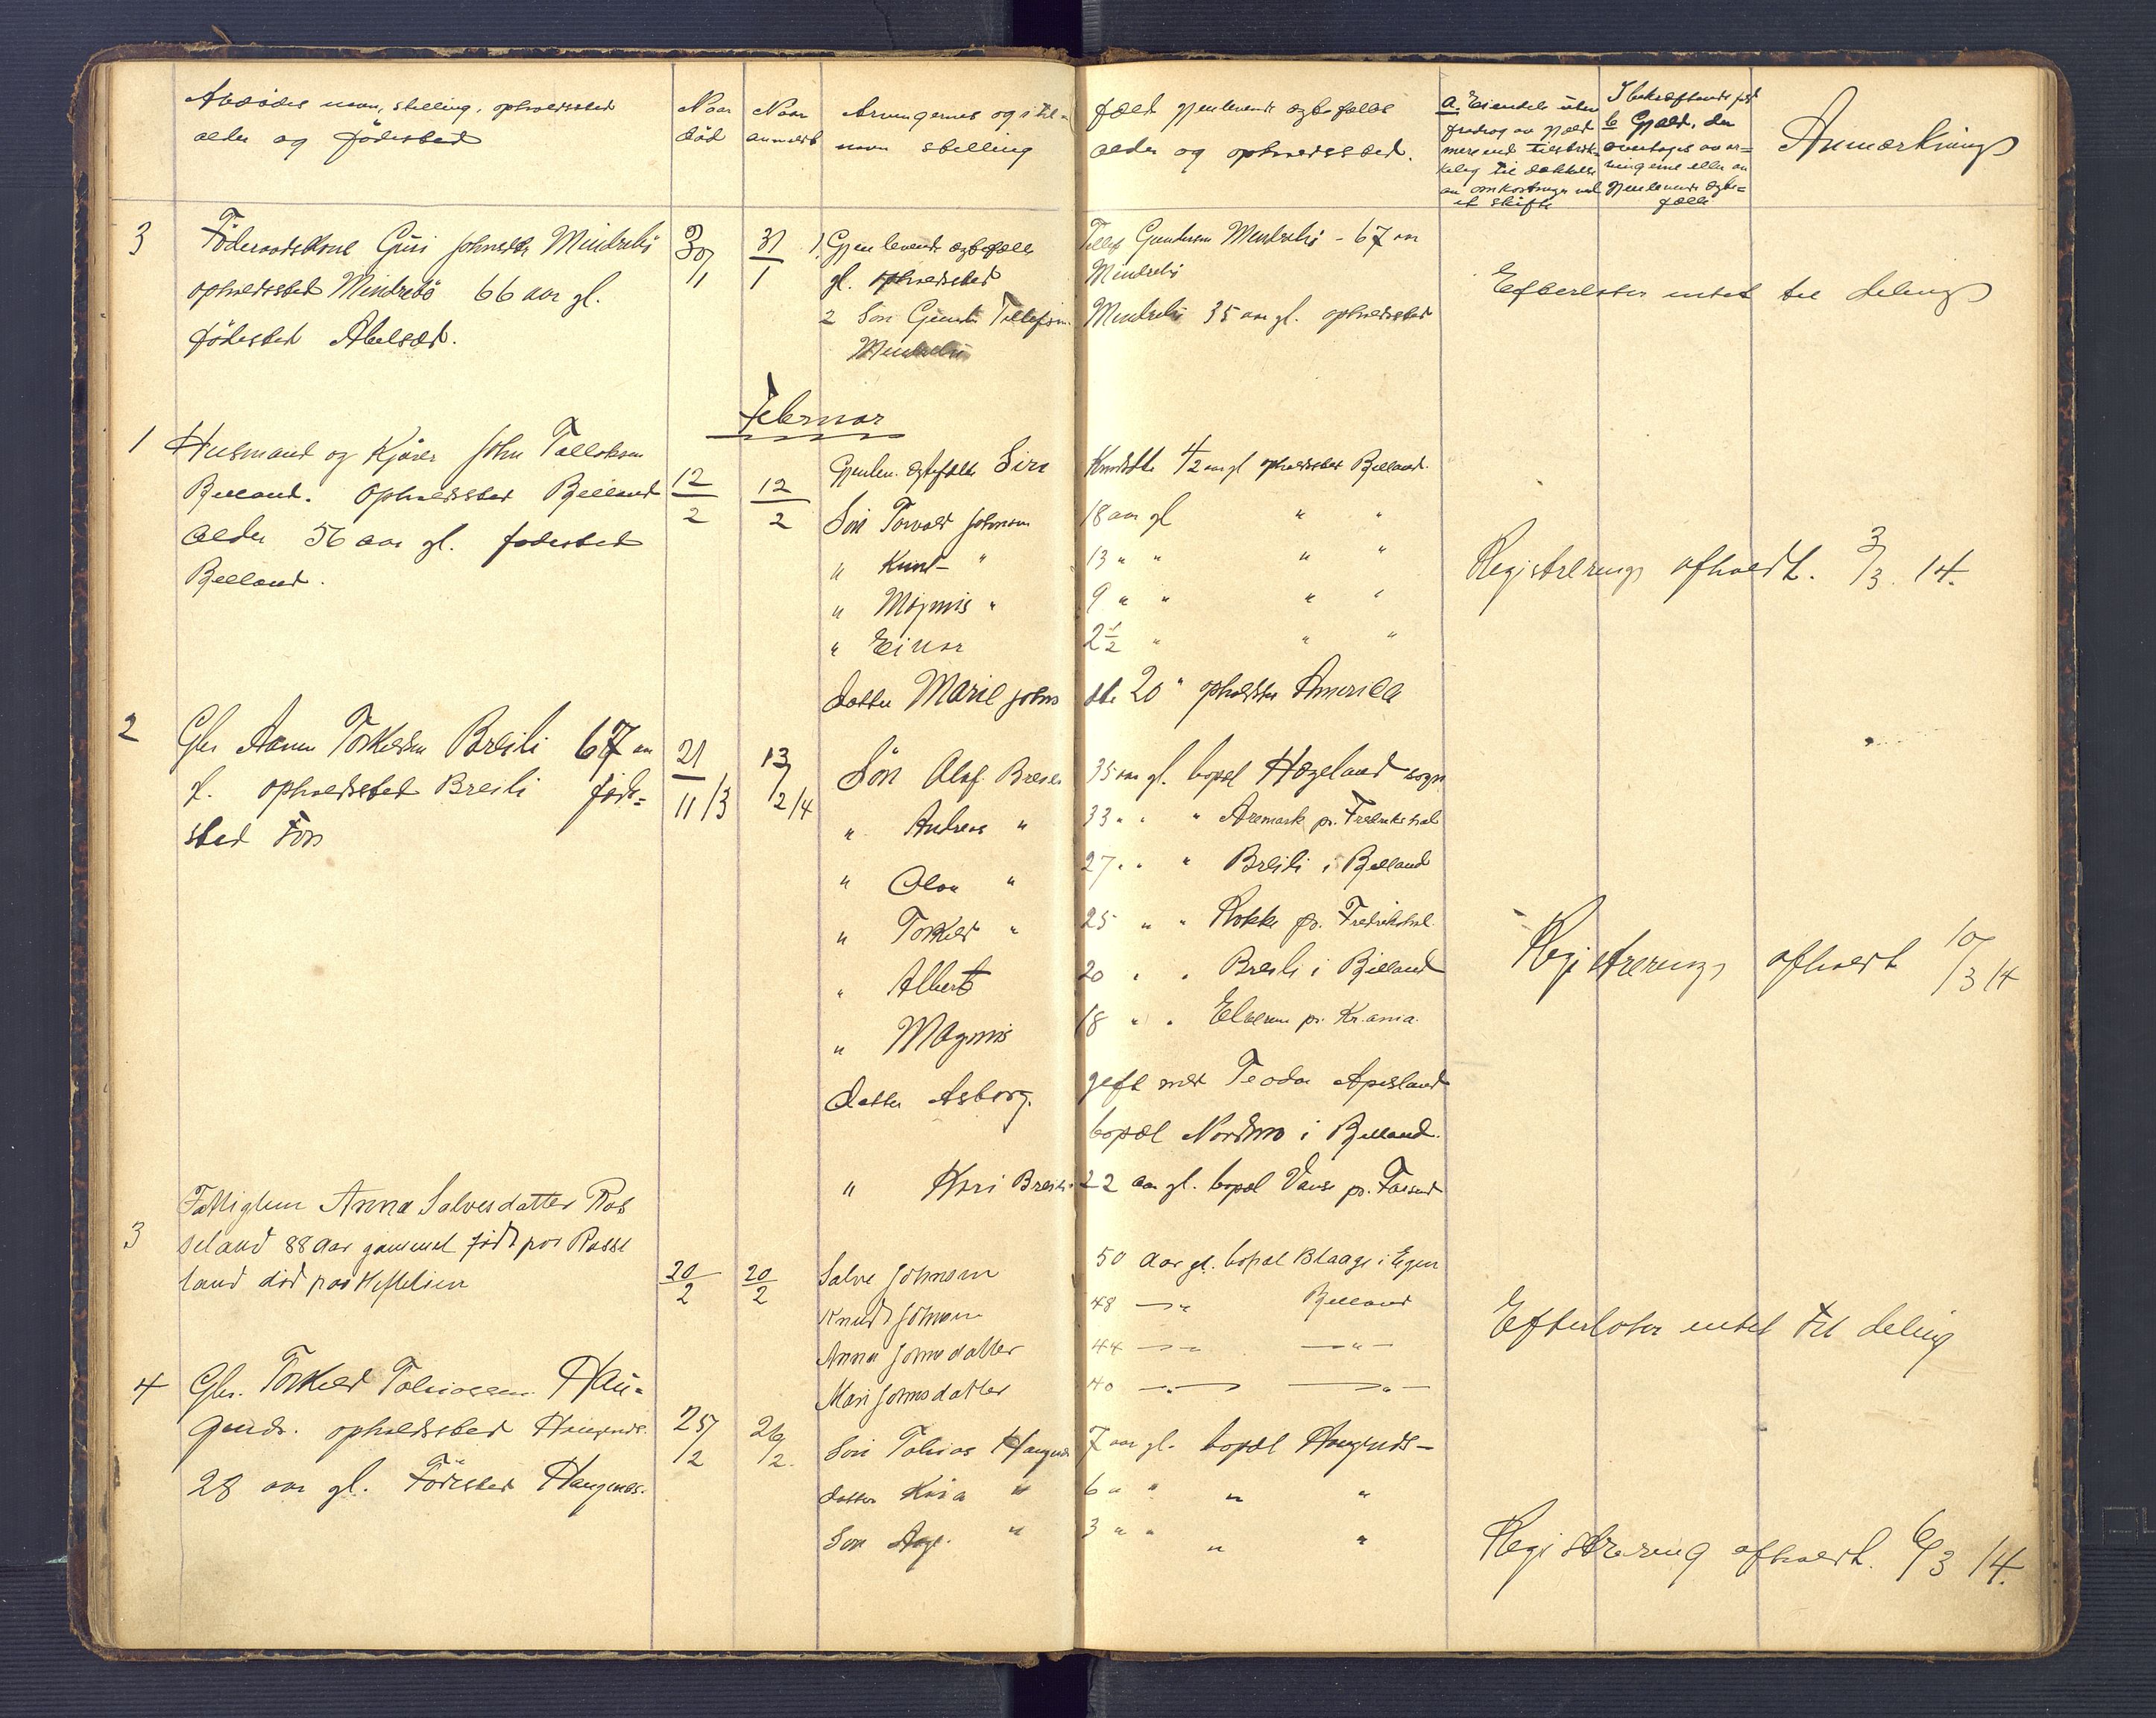 Avdødes navn, stilling, opholdssted
alder og fødested
Naar død
Naar anmeldt
Arvingernes og i til-
fæld gjenlevende ægtefælle
navn stilling
alder og opholdssted.
a. Eiendele uten
fradrag av gjæld
mere end tilstrek-
kelig til dækkelse
av omkostninger ved
et skifte
I bekræftende fald
b Gjæld, der
overtages av ar=
vingerne eller av
gjenlevende ægte=
fælle
Anmærkning
3 Føderaadskone Guri Johnsdtr Mindrebø
opholdssted Mindrebø 66 aar gl.
fødested Abelsæt.
30/1
31/1
1. Gjenlevende ægtefælle Tellef Gundersen Mindrebø - 67 aar
gl. opholdssted Mindrebø
2 Søn Gunder Tellefsen Mindrebø 35 aar gl. opholdssted
Mindrebø
Efterlater intet til deling
Februar
1 Husmand og Kjører John Tallaksen
Bjelland. Opholdssted Bjelland
alder 56 aar gl. fødested
Bjelland.
12/2
12/2
Gjenlev. ægtefælle Siri Knudsdtr 42 aar gl opholdssted Bjelland.
Søn Torvald Johnsen 18 aar gl " "
" Knut " 13 " " " "
" Magnis " 9 " " " "
" Einar 2 1/2 " " "
datter Marie Johns dtr 20 " opholdssted Amerika
Registrering afholdt. 3/3. 14.
2 Gbr Aanen Torkelsen Breili 67 aar
gl. opholdssted Breili føde=
sted Foss
21/11 13
13/2 14
Søn Olaf Breili 35 aar gl. bopæl Hægeland sogn
" Andreas " 33 " " " Aremark pr. Fredrikshald
" Olav " 27 " " " Breili i Bjelland
" Torkel " 25 " " Rokke pr. Fredrikshal
" Albert 20 " " Breili i Bjelland
" Magnis 18 " " Elverum pr. Kr.ania.
datter Asborg. gift med Teodor Apesland
bopæl Nordmo i Bjelland.
" Kari Breili 22 aar gl. bopæl Vanse pr. Farsund
Registrering afholdt 10/3 14
3 Fattiglem Anna Salvesdatter Ros
seland 88 Aar gammel født paa Rosse
land død paa Heftelien
20/2
20/2
Salve Johnsen 50 Aar gl. bopæl Blaage i Egen
Knud Johnsen 48 — " Bjelland
Anna Johnsdatter 44 — " — " —
Mari Johnsdatter 40 — " — — " —
Efterlater intet til deling
4 Gbr. Torkel Tobiassen Hau=
genes. opholdssted Haugenes.
28 aar gl. Fødested Haugenes.
25/2
26/2.
Søn Tobias Haugenes 7 aar gl. bopæl Haugenes —
datter Kira " 6 " " " "
Søn Aage. " 3 " " " "
Registrering afholdt. 6/3 14.